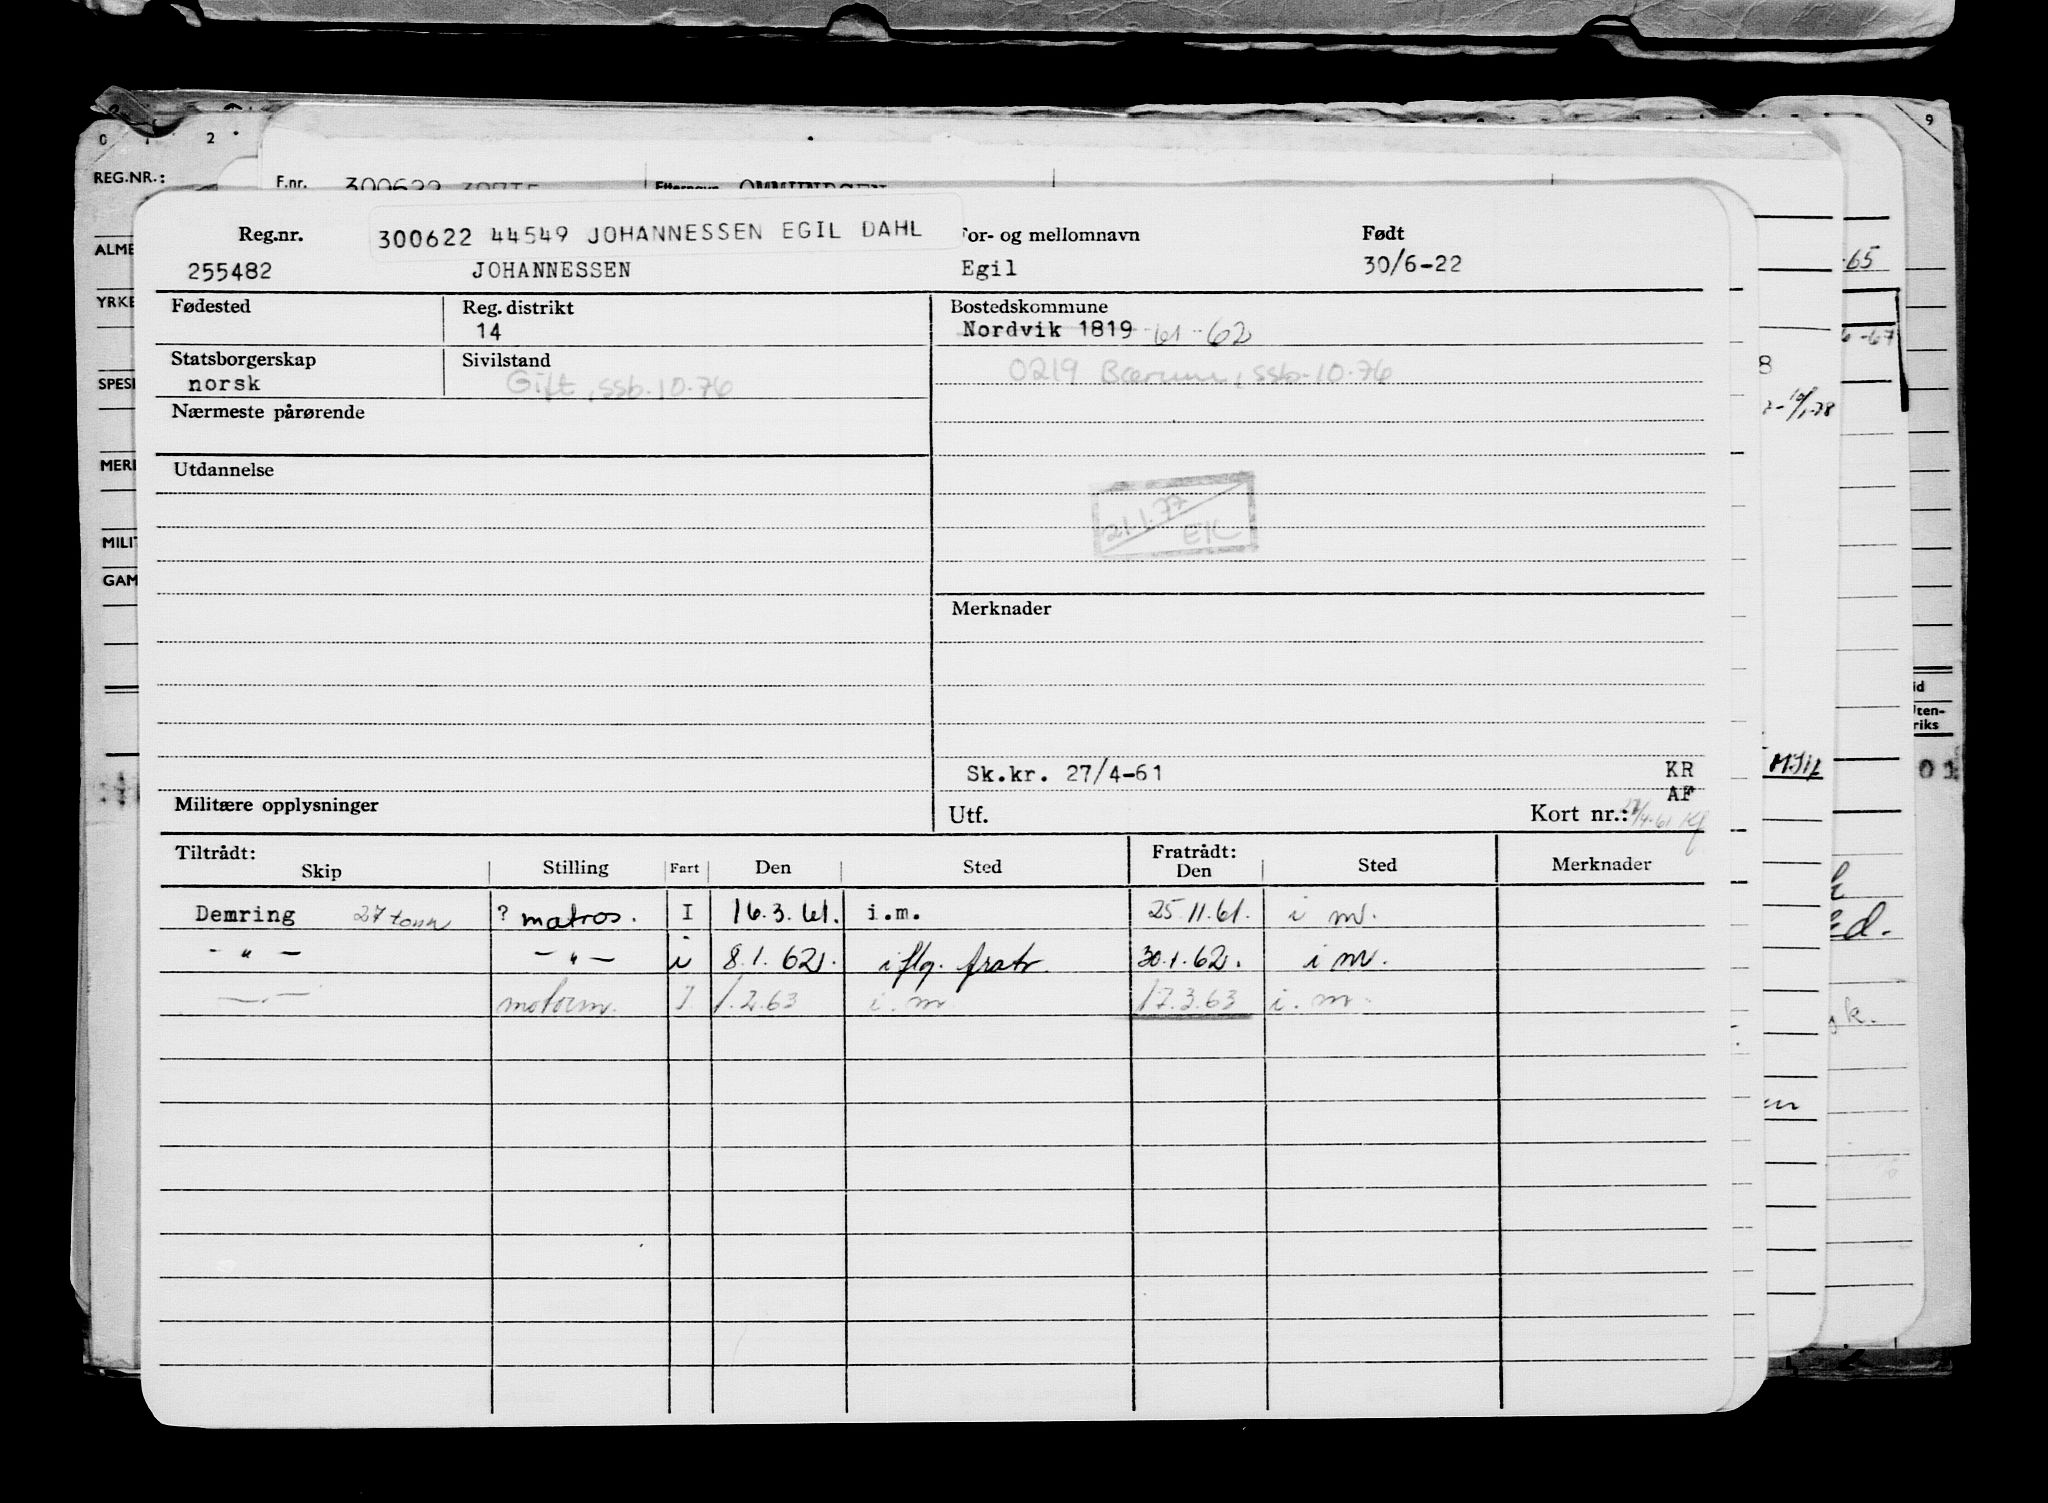 0 1 2 9
REG.NR.:
F.nr. 300622
300622 44549 JOHANNESSEN EGIL DAHL
Reg.nr. For- og mellomnavn Født
255482 JOHANNESSEN Egil 30/6-22
Fødested Reg. distrikt Bostedskommune
14 Nordvik 1819 61-62
Statsborgerskap Sivilstand
norsk Gift, ssb.10.76 0219 Bærum, ssb.10.76
Nærmeste pårørende
Utdannelse
21.1.77
EK
Merknader
Sk.kr. 27/4-61 KR
AF
Militære opplysninger Utf. Kort nr.:
Tiltrådt: Fratrådt:
Skip Stilling Fart Den Sted Den Sted Merknader
Demring 27 tonn ? matros. I 16.3.61. i.m. 25.11.61. i m.
- " - - " - i 8.1.62. iflg. fratr. 30.1.62. i m.
- " - motorm. I 1.2.63 i.m. 17.3.63 i.m.